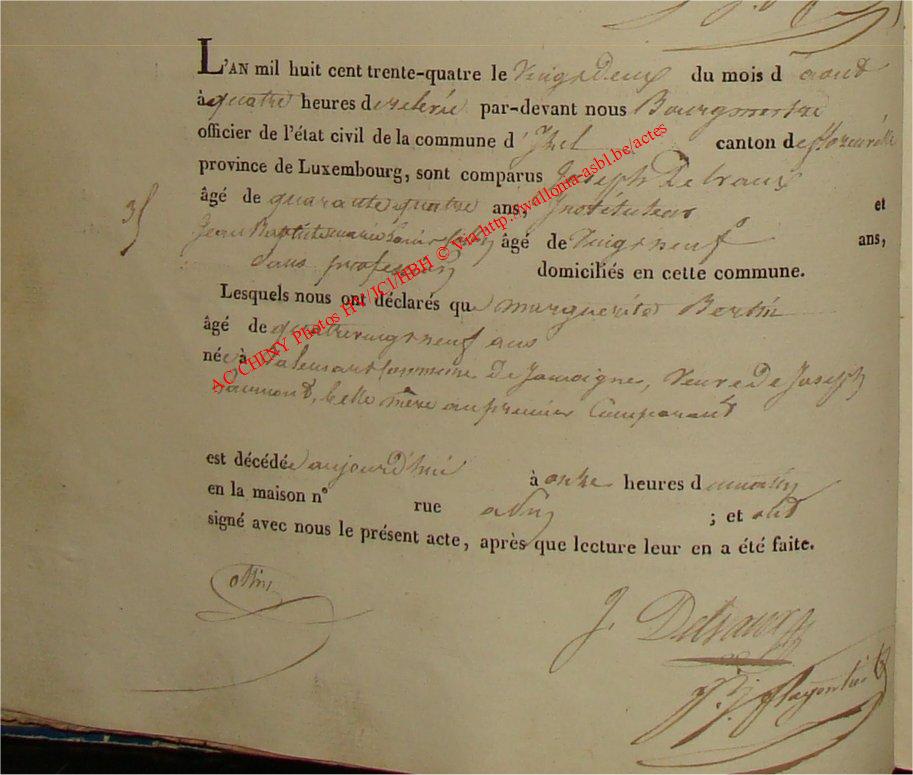 L'AN mil huit cent trente-quatre le Vingt Deux du mois d'août
à quatre heures de relevée par-devant nous Bourgmestre
officier de l'état civil de la commune d'Izel canton de florenville
province de Luxembourg, sont comparus Joseph Detraux
âgé de quarante quatre ans, Instituteur et
Jean Baptiste marie Louis âgé de Vingt neuf ans,
sans profession domiciliés en cette commune.
Lesquels nous ont déclarés que marguerite Bertin
âgé de quatre vingt neuf ans
née à Valensart Commune De Jamoigne, Veuve De Joseph
belle mère au premier Comparant
35
est décédée aujourd'hui à onze heures du matin
en la maison n° rue ; et ont
signé avec nous le présent acte, après que lecture leur en a été faite.
J. Detraux
AC/CHINY Photos HP/JCl/HBH © Via http://wallonia-asbl.be/actes